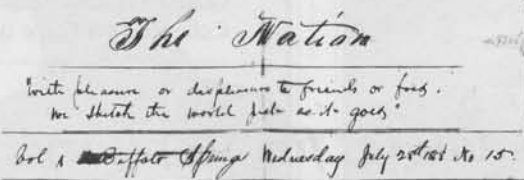 The Nation
"With pleasure or displeasure to friends or foes.
We sketch the world just as it goes"
Vol 1 Buffalo Springs Wednesday July 28th No 15.